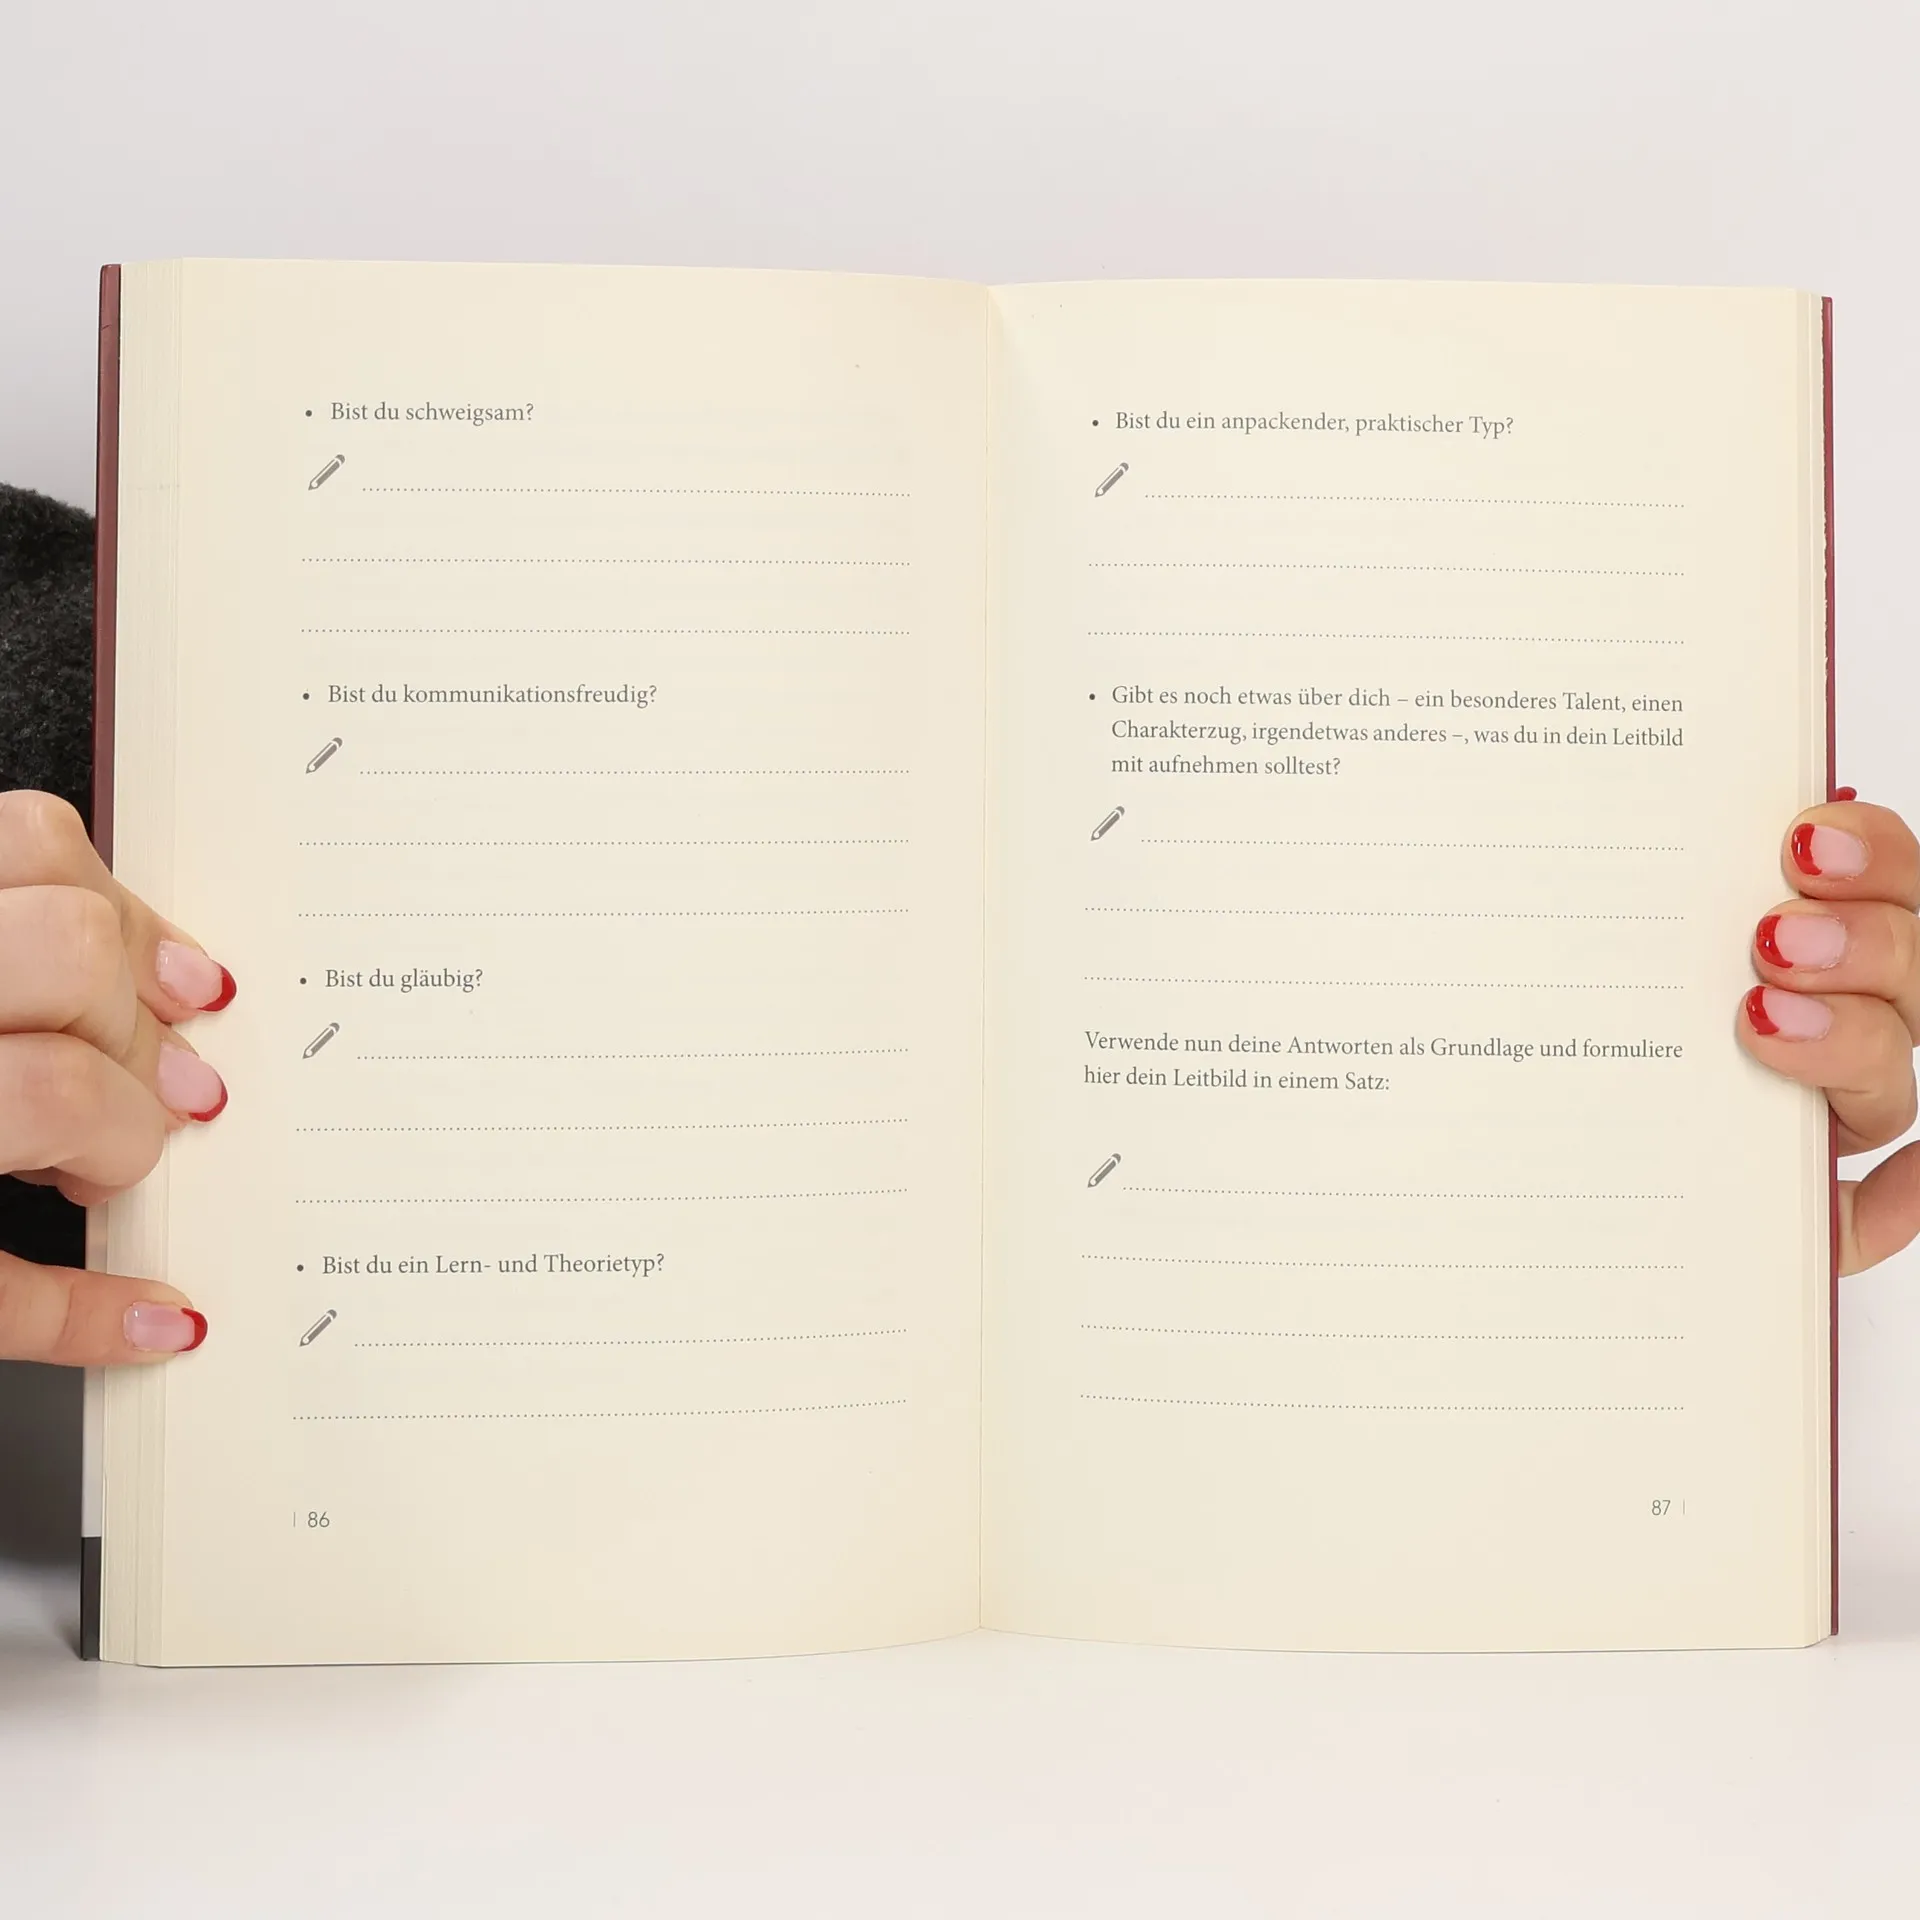 • Bist du schweigsam?
• Bist du kommunikationsfreudig?
• Bist du gläubig?
• Bist du ein Lern- und Theorietyp?
| 86
• Bist du ein anpackender, praktischer Typ?
• Gibt es noch etwas über dich – ein besonderes Talent, einen
Charakterzug, irgendetwas anderes –, was du in dein Leitbild
mit aufnehmen solltest?
Verwende nun deine Antworten als Grundlage und formuliere
hier dein Leitbild in einem Satz:
87 |